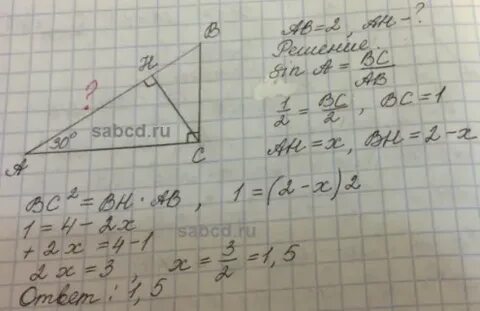 AB=2, AH-?
Решение
Sin A = BC/AB
1/2 = BC/2, BC=1
AH=x, BH=2-x
B
H
?
30°
A
C
sabcd.ru
BC² = BH · AB, 1=(2-x)2
1=4-2x
sabcd.ru
+2x=4-1
2x=3, x=3/2=1,5
Ответ: 1,5